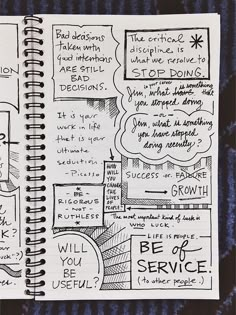 Bad decisions
taken with
good intentions
ARE STILL
BAD
DECISIONS.
The critical
discipline is
what we resolve to
STOP DOING.
in your career
is something
Jim, what have
you stopped doing
-or-
Jim, what is something
you have stopped
doing recently?
It is your
work in life
that is your
ultimate
seduction.
- Picasso
WHO
WILL YOU
CHANGE
THE
LIVES
OF
PEOPLE?
SUCCESS or FAILURE
GROWTH
- BE -
RIGOROUS
- NOT -
RUTHLESS
The most important kind of luck is
WHO LUCK.
WILL
YOU
BE
USEFUL?
LIFE IS PEOPLE.
BE of
SERVICE.
(to other people.)
ION